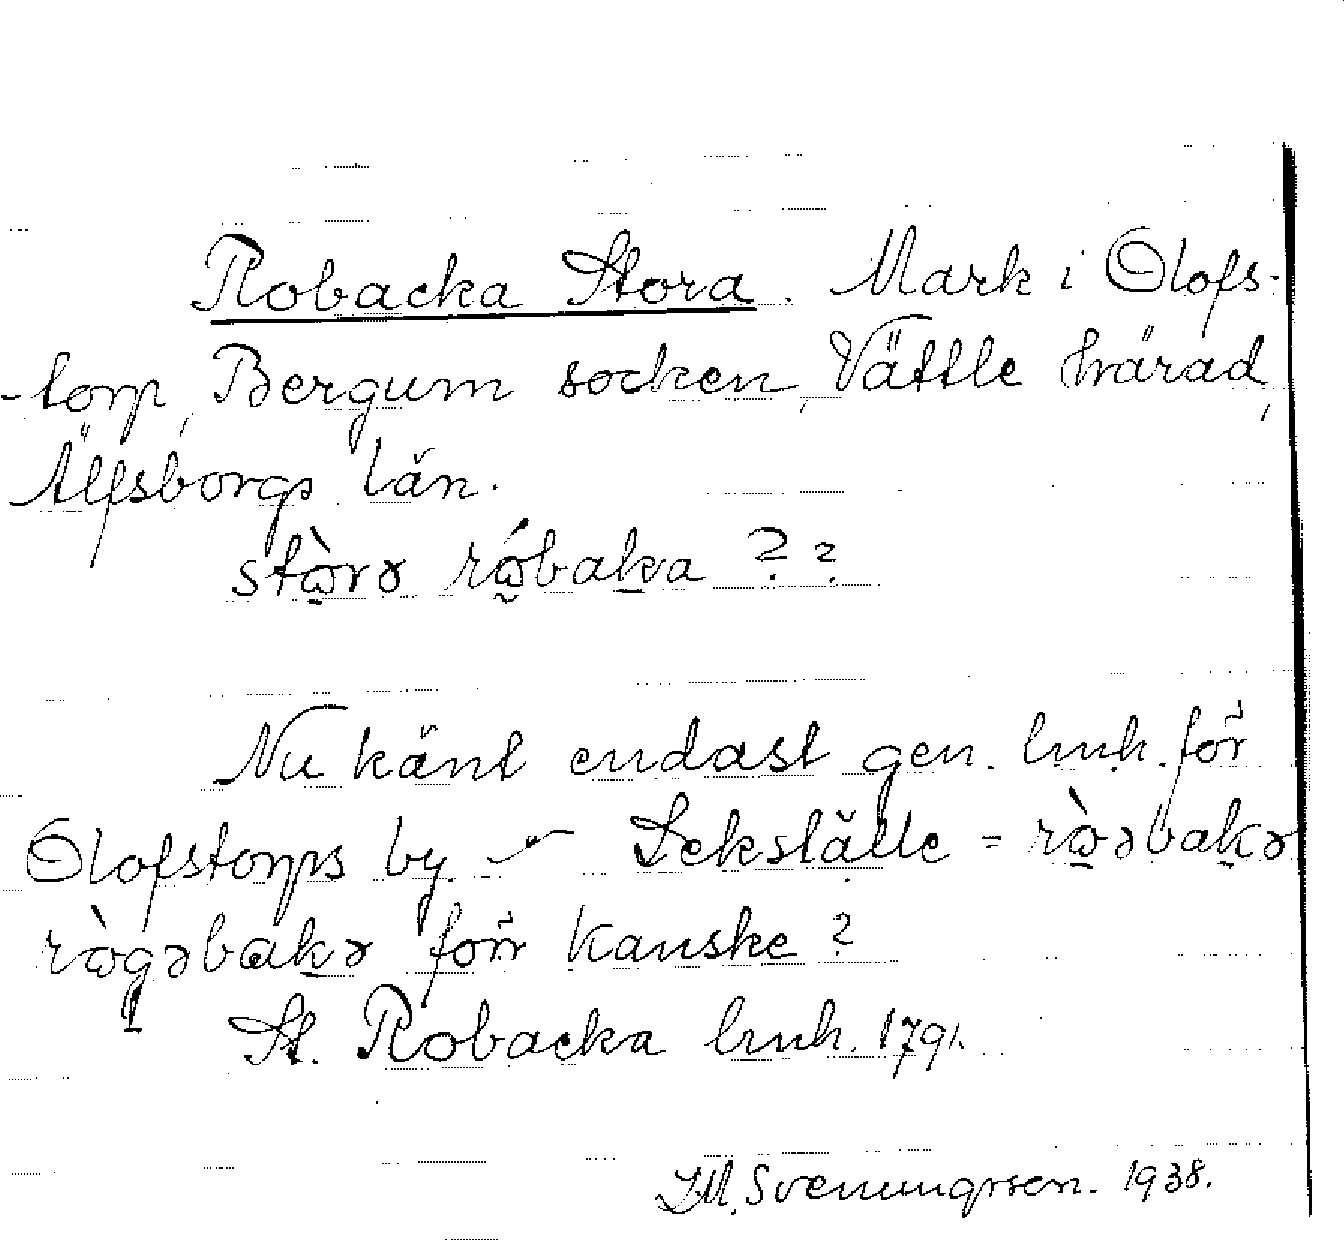 Robacka Stora. Mark i Olofs-
-torp, Bergum socken, Vättle härad,
Älfsborgs län.
stὼrə rώbaka ??
Nu känt endast gen. lmh. för
Olofstorps by – Lekställe = rὼəbakə
rὼgəbakə förr kanske?
St. Robacka lmh. 1791.
Svenungsson. 1938.